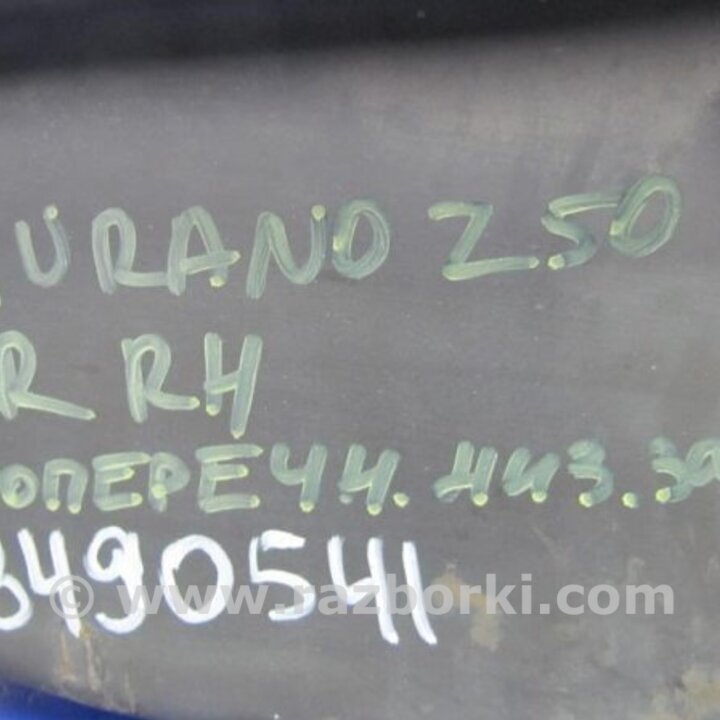 URANO Z50
R RH
ОПЕРЕЧН. НИЗ. ЗА
3490541
© www.razborki.com